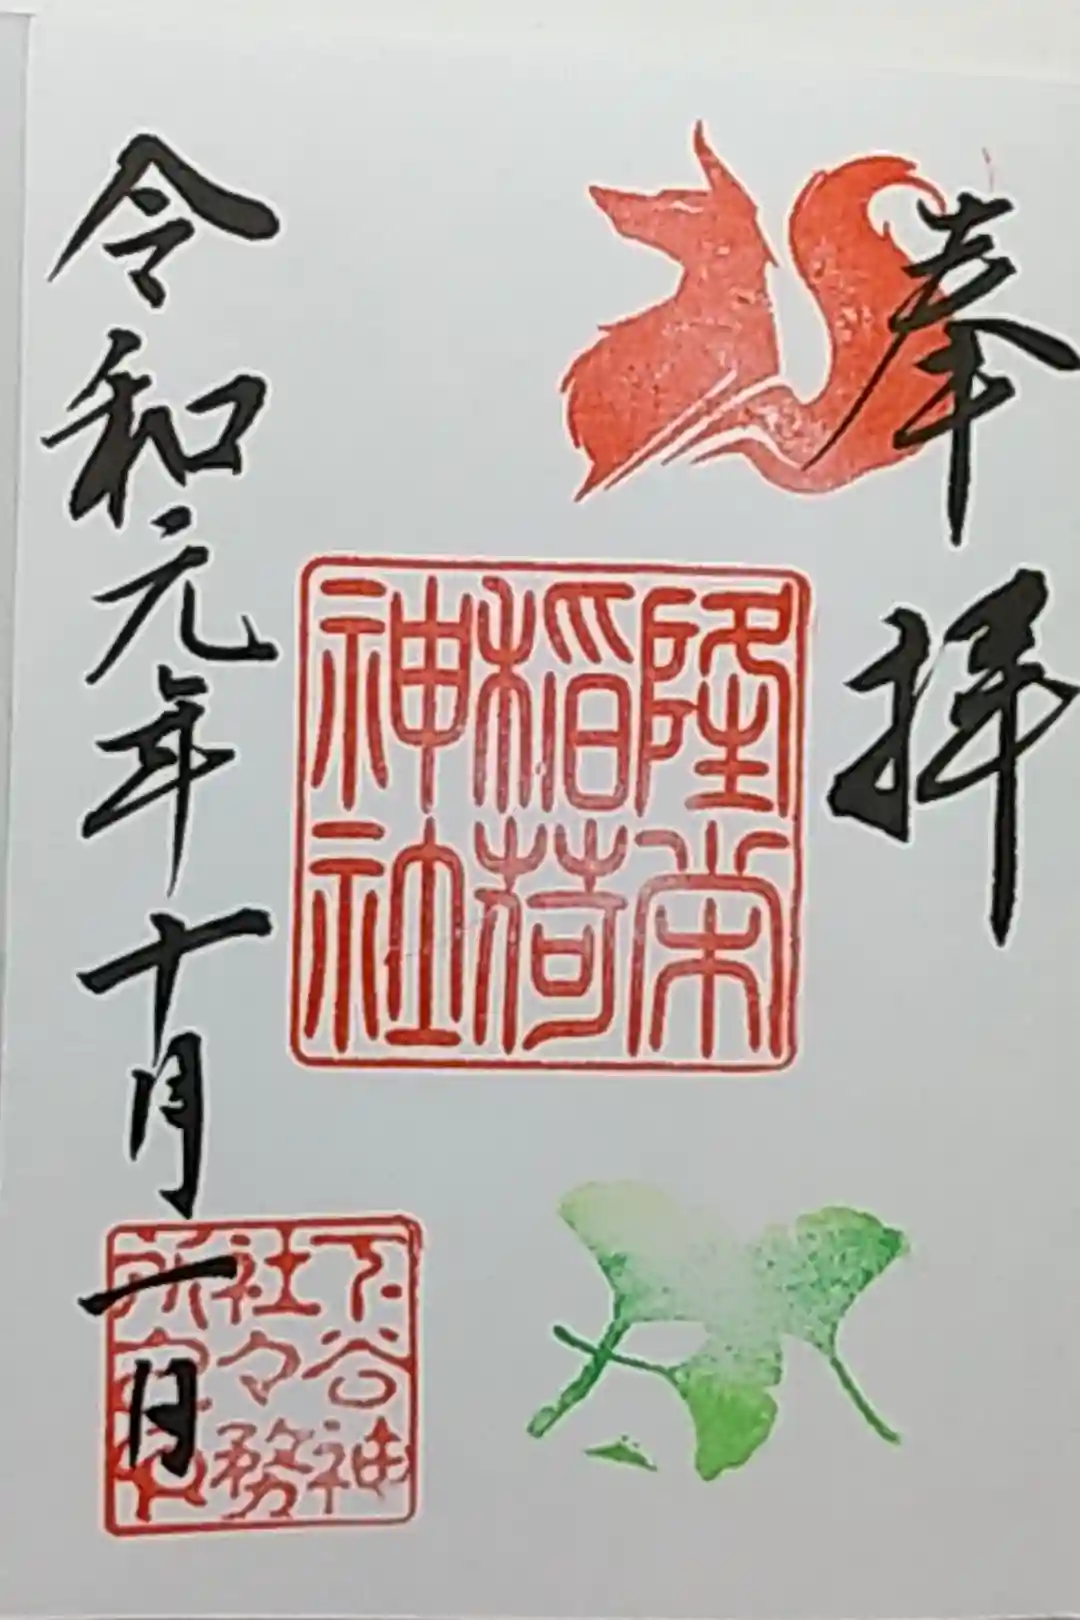 奉拝
隆栄
稲荷
神社
令和元年十月一日
下谷神
社々務
所